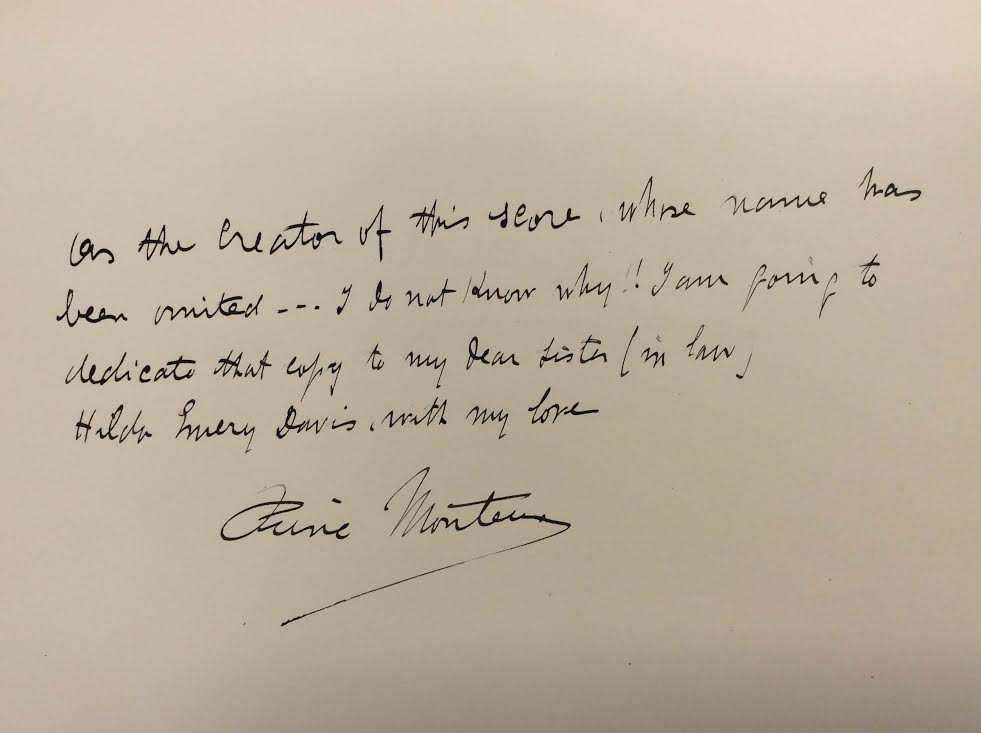 As the Creator of this score, whose name has
been omited --- I do not know why!! I am going to
dedicate that copy to my dear sister (in law)
Hilda Emery Davis, with my love
Pierre Monteux